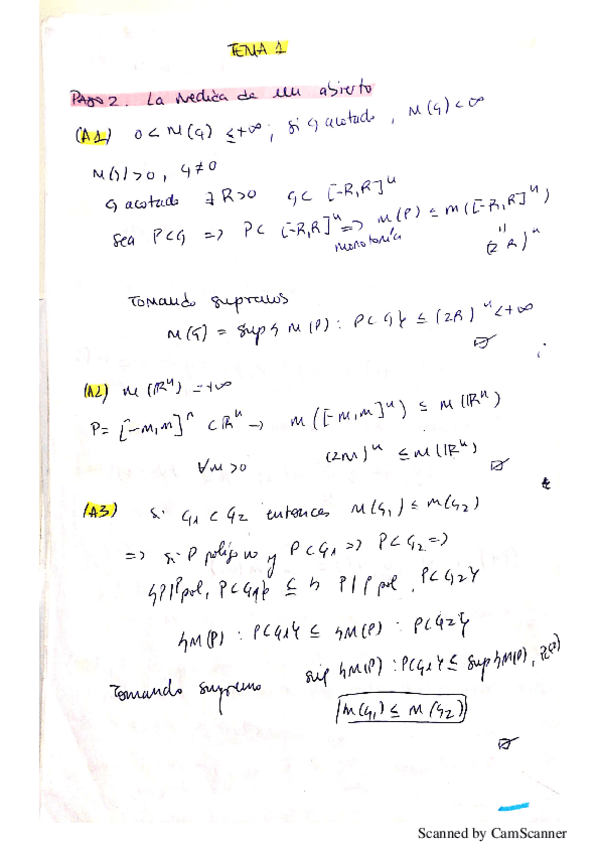 TEMA 1
PASO 2. La medida de un abierto
(A1) 0 < M(G) ≤ +∞; si G acotado, M(G) < ∞
M(G) > 0, G ≠ 0
G acotado ∃ R>0 G ⊂ [-R,R]ⁿ
Sea P⊂G => P⊂ [-R,R]ⁿ => M(P) ≤ M([-R,R]ⁿ)
monotonía
(2R)ⁿ
Tomando supremos
M(G) = sup{ M(P) : P⊂G} ≤ (2R)ⁿ < +∞
(A2) M(ℝⁿ) = +∞
P = [-m,m]ⁿ ⊂ ℝⁿ → M([-m,m]ⁿ) ≤ M(ℝⁿ)
∀m>0 (2m)ⁿ ≤ M(ℝⁿ)
(A3) Si G1 ⊂ G2 entonces M(G1) ≤ M(G2)
=> Si P polígono y P⊂G1 => P⊂G2 =>
{P/P pol, P⊂G1} ⊆ {P/P pol, P⊂G2}
{M(P) : P⊂G1} ⊆ {M(P) : P⊂G2}
Tomando supremo sup {M(P) : P⊂G1} ≤ sup {M(P),
M(G1) ≤ M(G2)
Scanned by CamScanner